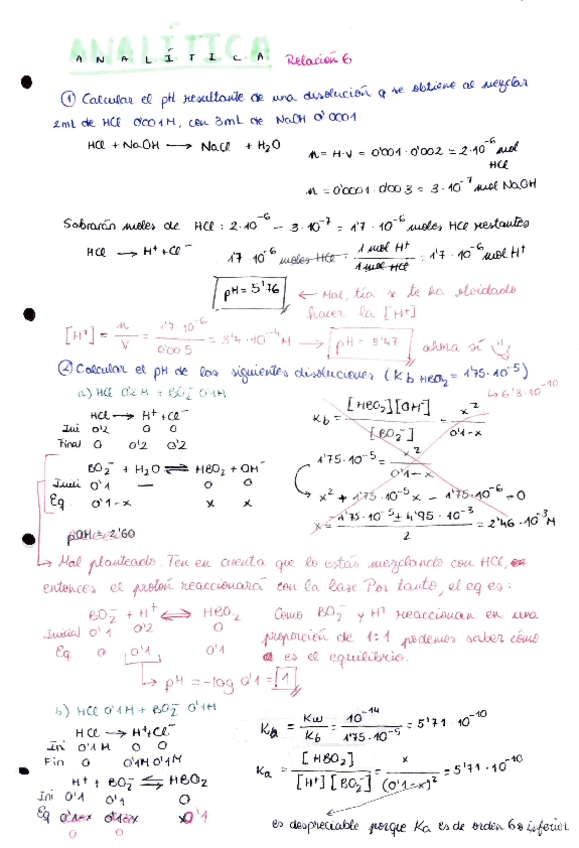 ANALÍTICA Relación 6
① Calcular el pH resultante de una disolución q se obtiene al mezclar
2mL de HCl 0'001M, con 3mL de NaOH 0'0001
HCl + NaOH ⟶ NaCl + H₂O
n = M·V = 0'001 · 0'002 = 2·10⁻⁶ mol HCl
n = 0'0001 · 0'003 = 3·10⁻⁷ mol NaOH
Sobrarán moles de HCl : 2·10⁻⁶ − 3·10⁻⁷ = 1'7·10⁻⁶ moles HCl restantes
HCl ⟶ H⁺ + Cl⁻ 1'7·10⁻⁶ moles HCl · 1 mol H⁺ / 1 mol HCl = 1'7·10⁻⁶ mol H⁺
pH = 5'76 ← Mal, tía se te ha olvidado
hacer la [H⁺]
[H⁺] = n/V = 1'7·10⁻⁶ / 0'005 = 3'4·10⁻⁴ M ⟶ pH = 3'47 ahora sí
② Calcular el pH de las siguientes disoluciones (Kb HBO₂ = 1'75·10⁻⁵)
↳ 6'3·10⁻¹⁰
a) HCl 0'2M + BO₂⁻ 0'1M
HCl ⟶ H⁺ + Cl⁻
Ini 0'2 0 0
Final 0 0'2 0'2
Kb = [HBO₂][OH⁻] / [BO₂⁻] = x² / 0'1−x
BO₂⁻ + H₂O ⇌ HBO₂ + OH⁻
Inici 0'1 — 0 0
Eq 0'1−x x x
1'75·10⁻⁵ = x² / 0'1−x
x² + 1'75·10⁻⁵x − 1'75·10⁻⁶ = 0
x = −1'75·10⁻⁵ ± 4'95·10⁻³ / 2 = 2'46·10⁻³ M
pOH = 2'60
Mal planteado. Ten en cuenta que lo estás mezclando con HCl,
entonces el protón reaccionará con la base. Por tanto, el eq es:
BO₂⁻ + H⁺ ⇌ HBO₂
Inicial 0'1 0'2 0
Eq. 0 0'1 0'1
Como BO₂⁻ y H⁺ reaccionan en una
proporción de 1:1 podemos saber cómo
es el equilibrio.
↳ pH = −log 0'1 = 1
b) HCl 0'1M + BO₂⁻ 0'1M
HCl ⟶ H⁺ + Cl⁻
Ini 0'1M 0 0
Fin 0 0'1M 0'1M
Ka = Kw / Kb = 10⁻¹⁴ / 1'75·10⁻⁵ = 5'71·10⁻¹⁰
H⁺ + BO₂⁻ ⇌ HBO₂
Ini 0'1 0'1 0
Eq 0'1−x 0'1−x x 0'1
0 0
Ka = [HBO₂] / [H⁺][BO₂⁻] = x / (0'1−x)² = 5'71·10⁻¹⁰
es despreciable porque Ka es de orden 6 o inferior